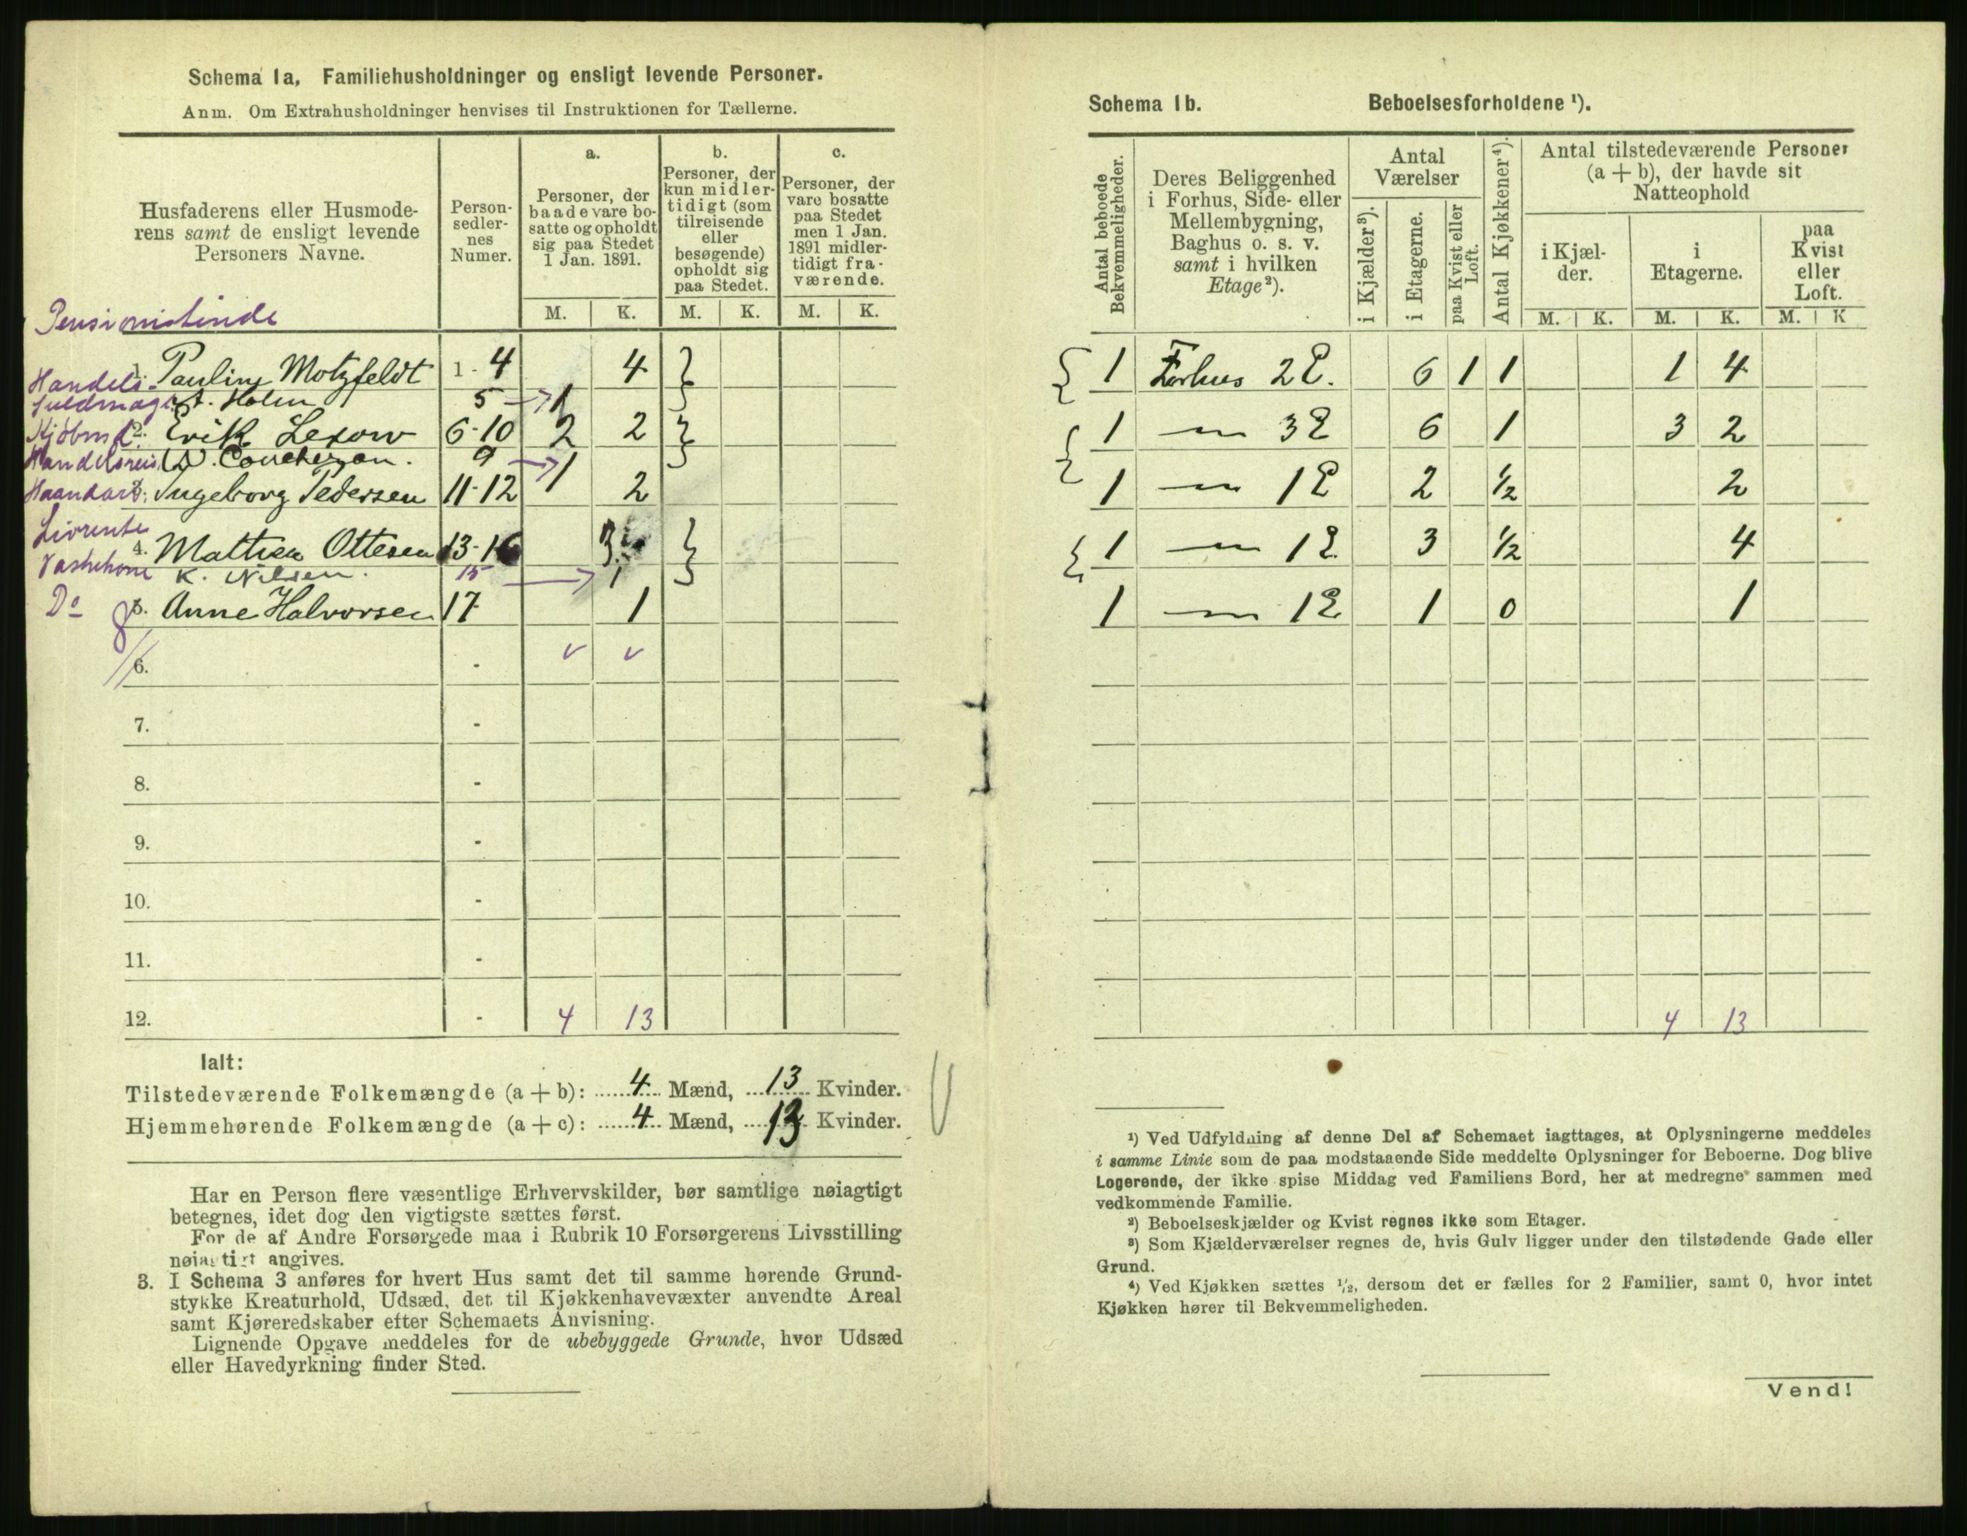 Schema 1a, Familiehusholdninger og ensligt levende Personer.
Anm. Om Extrahusholdninger henvises til Instruktionen for Tællerne.
Husfaderens eller Husmode-
rens samt de ensligt levende
Personers Navne.
Person-
sedler-
nes
Numer.
a.
Personer, der
baade vare bo-
satte og opholdt
sig paa Stedet
1 Jan. 1891.
b.
Personer, der
kun midler-
tidigt (som
tilreisende
eller
besøgende)
opholdt sig
paa Stedet.
c.
Personer, der
vare bosatte
paa Stedet
men 1 Jan.
1891 midler-
tidigt fra-
værende.
M. K. M. K. M. K.
Pensionistinde
1. Pauline Motzfeldt 1-4 4
Handels-
fuldmægt. A. Holm 5 1
Kjøbmd. 2. Erik Lexow 6-10 2 2
Handelsreis. W. Coucheron. 9 1
Haandarb. 3. Ingeborg Pedersen 11-12 2
Livrente
4. Mathea Ottesen 13-16 3
Vaskekone K. Nilsen. 15 1
Do 5. Anne Halvorsen 17 1
6. - v v
7. -
8. -
9. -
10. -
11. -
12. - 4 13
Ialt:
Tilstedeværende Folkemængde (a + b): 4 Mænd, 13 Kvinder.
Hjemmehørende Folkemængde (a + c): 4 Mænd, 13 Kvinder.
Har en Person flere væsentlige Erhvervskilder, bør samtlige nøiagtigt
betegnes, idet dog den vigtigste sættes først.
For de af Andre Forsørgede maa i Rubrik 10 Forsørgerens Livsstilling
nøiagtigt angives.
3. I Schema 3 anføres for hvert Hus samt det til samme hørende Grund-
stykke Kreaturhold, Udsæd, det til Kjøkkenhavevæxter anvendte Areal
samt Kjøreredskaber efter Schemaets Anvisning.
Lignende Opgave meddeles for de ubebyggede Grunde, hvor Udsæd
eller Havedyrkning finder Sted.
Schema 1b. Beboelsesforholdene ¹).
Antal beboede
Bekvemmeligheder.
Deres Beliggenhed
i Forhus, Side- eller
Mellembygning,
Baghus o. s. v.
samt i hvilken
Etage²).
Antal
Værelser
i Kjælder³).
i Etagerne.
paa Kvist eller
Loft.
Antal Kjøkkener⁴).
Antal tilstedeværende Personer
(a + b), der havde sit
Natteophold
i Kjæl-
der.
i
Etagerne.
paa
Kvist
eller
Loft.
M. K. M. K. M. K
1 Forhus 2 E. 6 1 1 1 4
1 — " — 3 E 6 1 3 2
1 — " — 1 E 2 ½ 2
1 — " — 1 E. 3 ½ 4
1 — " — 1 E 1 0 1
4 13
¹) Ved Udfyldning af denne Del af Schemaet iagttages, at Oplysningerne meddeles
i samme Linie som de paa modstaaende Side meddelte Oplysninger for Beboerne. Dog blive
Logerende, der ikke spise Middag ved Familiens Bord, her at medregne sammen med
vedkommende Familie.
²) Beboelseskjælder og Kvist regnes ikke som Etager.
³) Som Kjælderværelser regnes de, hvis Gulv ligger under den tilstødende Gade eller
Grund.
⁴) Ved Kjøkken sættes ½, dersom det er fælles for 2 Familier, samt 0, hvor intet
Kjøkken hører til Bekvemmeligheden.
Vend!